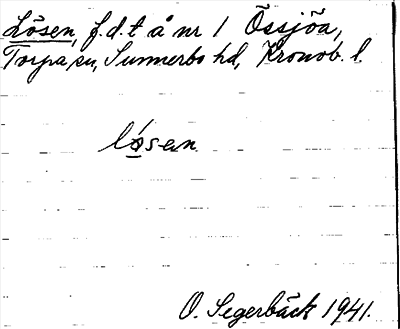 Lösen, f.d.t å nr 1 Össjöa,
Torpa sn, Sunnerbo hd, Kronob. l.
lósen
O. Segerbäck 1941.